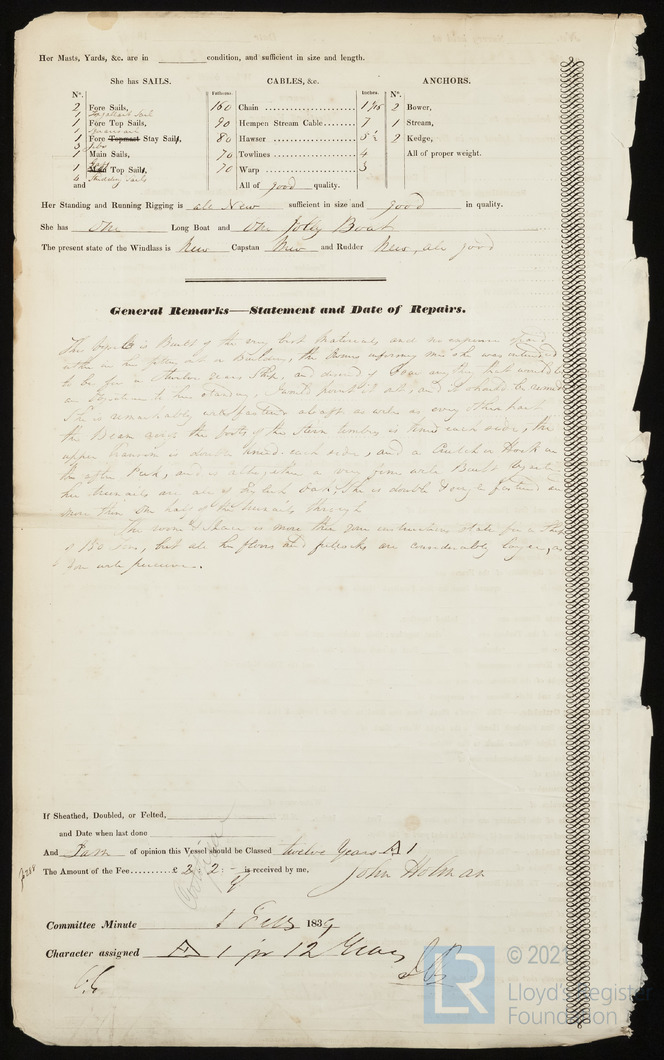 Her Masts, Yards, &c. are in condition, and sufficient in size and length.
She has SAILS. CABLES, &c. ANCHORS.
N°. Fathoms. Inches. N°.
2 Fore Sails, 160 Chain 1 1/16 2 Bower,
1
1 Fore Top Sails, 90 Hempen Stream Cable 7 1 Stream,
1
1 Fore Topmast Stay Sails, 80 Hawser 5½ 2 Kedge,
3 Jibs
1 Main Sails, 70 Towlines 4 All of proper weight.
1 Top Sails, 70 Warp 3
4 Studding Sails
and All of good quality.
Her Standing and Running Rigging is all New sufficient in size and good in quality.
She has One Long Boat and One Jolly Boat
The present state of the Windlass is New Capstan New and Rudder New, all good
General Remarks—Statement and Date of Repairs.
is Built of the very best Materials, and no expense
in her fitting out or Building, the Owners informing me she was intended
to be for a Twelve years Ship, and desired if I saw any thing that would be
an objection to her standing, I would point it out, and it should be
She is remarkably well fastened abaft as well as every other part
the Beam the of the Stern timbers is kneed each side, the
upper transom is double kneed each side, and a Crutch or Hook in
the after Peek, and is altogether a very firm well Built
her treenails are all of English Oak, She is double fastened and
more than one half of the treenails through
The room & Space is more than your instructions state for a Ship
of 180 tons, but all her floors and futtocks are considerably larger, as
You will perceive.
If Sheathed, Doubled, or Felted,
and Date when last done
And I am of opinion this Vessel should be Classed twelve Years A 1
The Amount of the Fee £ 2 : 2 : - is received by me,
John Holman
Committee Minute 1 Feby 1839
Character assigned A 1 for 12 Years
© 202
LR
Lloyd's Register
Foundation